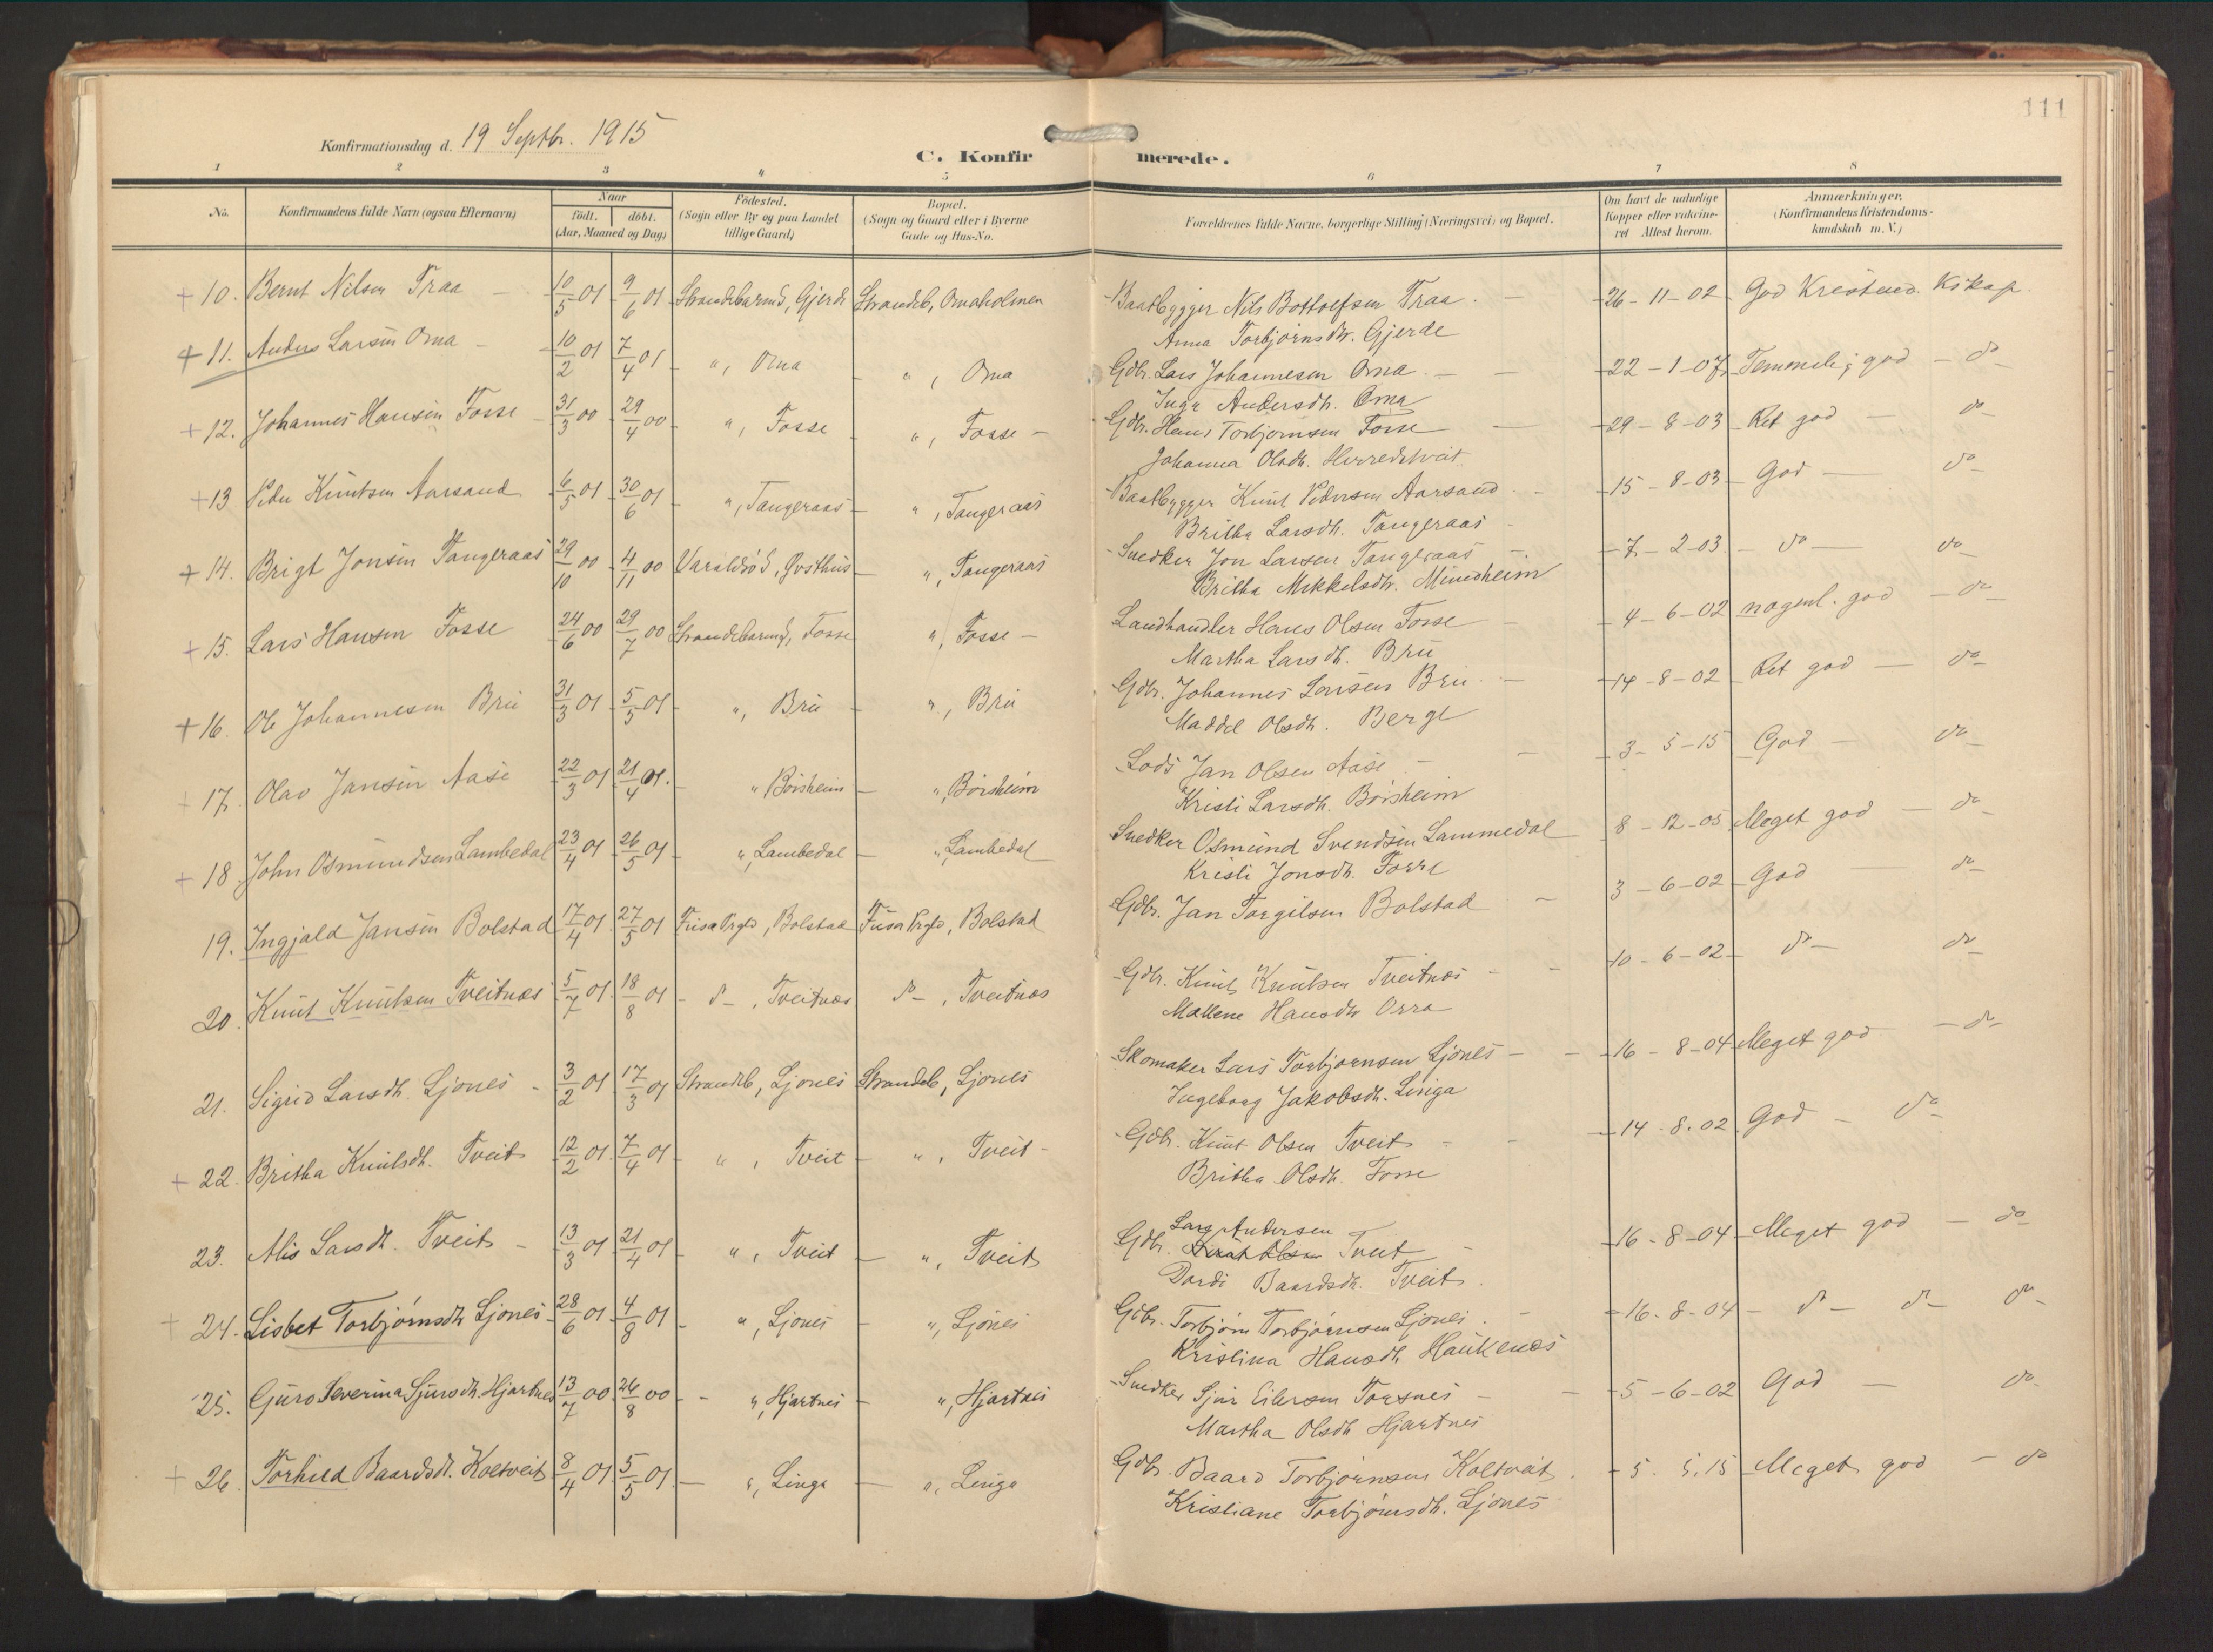 111
Konfirmationsdag d. 19 Septbr. 1915
C. Konfirmerede.
1 2 3 4 5 6 7 8
No. Konfirmandens fulde Navn (ogsaa Efternavn) Naar født. døbt. (Aar, Maaned og Dag) Födested. (Sogn eller By og paa Landet tillige Gaard) Bopæl. (Sogn og Gaard eller i Byerne Gade og Hus-No. Forældrenes fulde Navne, borgerlige Stilling (Næringsvei) og Bopæl. Om havt de naturlige Kopper eller vakcineret Attest herom. Anmærkninger. (Konfirmandens Kristendomskundskab m. V.)
+ 10. Bernt Nilsen Traa 10/5 01 9/6 01 Strandebarms, Gjerde Strandeb, Omaholmen Baatbygger Nils Bottolfsen Traa. 26-11-02 God Kristend. Kskap
Anna Torbjørnsdtr. Gjerde
+ 11. Anders Larsen Oma 10/2 01 7/4 01 ", Oma ", Oma Gdbr. Lars Johannesen Oma. 22-1-07 Temmeli; god do
Inga Andersdtr. Oma
+ 12. Johannes Hansen Fosse 31/3 00 29/4 00 ", Fosse ", Fosse Gdbr. Hans Torbjørnsen Fosse 29-8-03 Ret god do
Johanna Olsdtr. Herredstveit
+ 13 Peder Knutsen Aarsand 6/5 01 30/6 01 ", Tangeraas ", Tangeraas Baatbygger Knut Pedersen Aarsand. 15-8-03 God do
Britha Larsdtr. Tangeraas
+ 14. Brigt Jonsen Tangeraas 29/10 00 4/11 00 Varaldsö S, Øvsthus ", Tangeraas Snedker Jon Larsen Tangeraas 7-2-03 do do
Britha Mikkelsdtr. Mundheim
+ 15. Lars Hansen Fosse 24/6 00 29/7 00 Strandebarms, Fosse ", Fosse Landhandler Hans Olsen Fosse 4-6-02 nogenl. god do
Martha Larsdtr. Bru
+ 16. Ole Johannesen Bru 31/3 01 5/5 01 ", Bru ", Bru Gdbr. Johannes Larsen Bru. 14-8-02 Ret god do
Maddel Olsdtr. Berge
+ 17. Olav Jansen Aase 22/3 01 21/4 01. " Börsheim ", Börsheim Lods Jan Olsen Aase. 3-5-15 God do
Kristi Larsdtr. Börsheim
+ 18 John Osmundsen Lambedal 23/4 01 26/5 01 ", Lambedal ", Lambedal Snedker Osmund Svendsen Lammedal 8-12-05 Meget god do
Kristi Jonsdtr. Forre
19. Ingjald Jansen Bolstad 17/4 01 27/5 01 Fusa Prgld, Bolstad Fusa Prgld, Bolstad Gdbr. Jan Torgilsen Bolstad 3-6-02 God do
20. Knut Knutsen Tveitnes 5/7 01 18/8 01 do, Tveitnes do, Tveitnes Gdbr. Knut Knutsen Tveitnes 10-6-02 do do
Mallene Hansdtr Orra
21. Sigrid Larsdtr. Ljones 3/2 01 17/3 01 Strandeb, Ljones Strandeb, Ljones Skomaker Lars Torbjørnsen Ljones 16-8-04 Meget god do
Ingeborg Jakobsdtr. Linga
+ 22. Britha Knutsdtr. Tveit 12/2 01 7/4 01 ", Tveit ", Tveit Gdbr. Knut Olsen Tveit 14.8.02 God do
Britha Olsdtr. Fosse
23. Alis Larsdtr. Tveit 13/3 01 21/4 01 ", Tveit ", Tveit Gdbr. Lars Andersen Tveit 16-8-04 Meget god do
Dordi Baardsdtr. Tveit.
+ 24. Lisbet Torbjørnsdtr Ljones 28/6 01 4/8 01 ", Ljones ", Ljones Gdbr. Torbjørn Torbjørnsen Ljones. 16-8-04 do do do
Kristina Hansdtr Haukenæs
25. Guro Severina Sjursdtr. Hjartnes 13/7 00 26/8 00 ", Hjartnes ", Hjartnes Snedker Sjur Eilersen Torsnes 5-6-02 God do
Martha Olsdtr Hjartnes
+ 26. Torhild Baardsdtr. Koltveit 8/4 01 5/5 01 ", Linga ", Linga Gdbr. Baard Torbjørnsen Koltveit. 5.5.15 Meget god do
Kristiane Torbjørnsdtr. Ljones